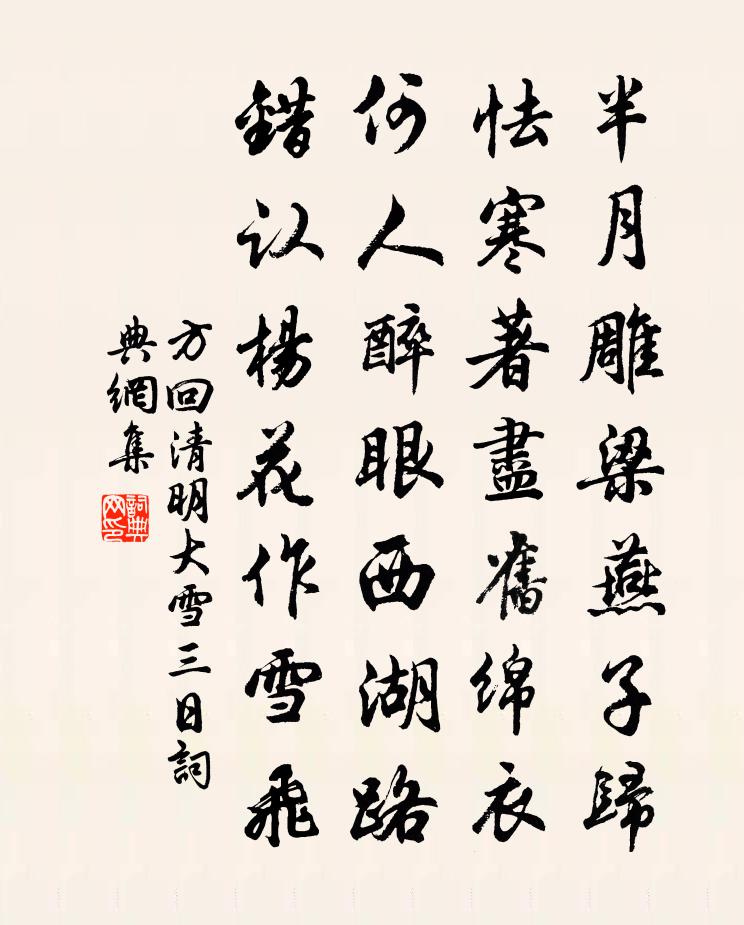 半月雕梁燕子歸
怯寒著盡舊綿衣
何人醉眼西湖路
錯认楊花作雪飛
方回清明大雪三日詞
典網集
詞典
网印